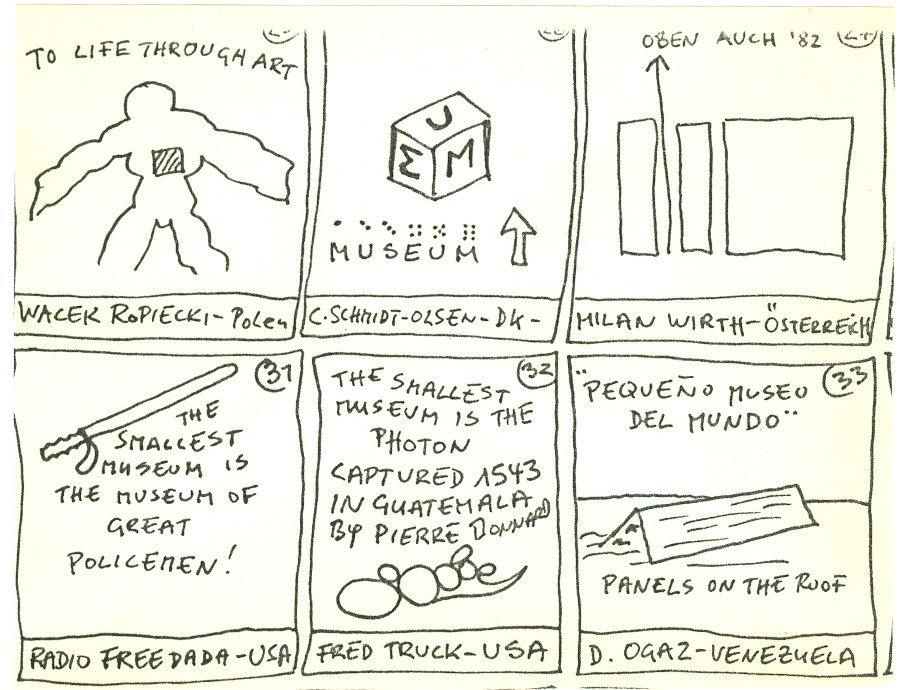 TO LIFE THROUGH ART
WACEK ROPIECKI-Polen
U
E M
MUSEUM
C.SCHMIDT-OLSEN-DK-
OBEN AUCH '82
MILAN WIRTH-ÖSTERREICH
31
THE
SMALLEST
MUSEUM IS
THE MUSEUM OF
GREAT
POLICEMEN!
RADIO FREE DADA-USA
32
THE SMALLEST
MUSEUM IS THE
PHOTON
CAPTURED 1543
IN GUATEMALA
BY PIERRE BONNARD
FRED TRUCK-USA
33
"PEQUEÑO MUSEO
DEL MUNDO"
PANELS ON THE ROOF
D. OGAZ-VENEZUELA